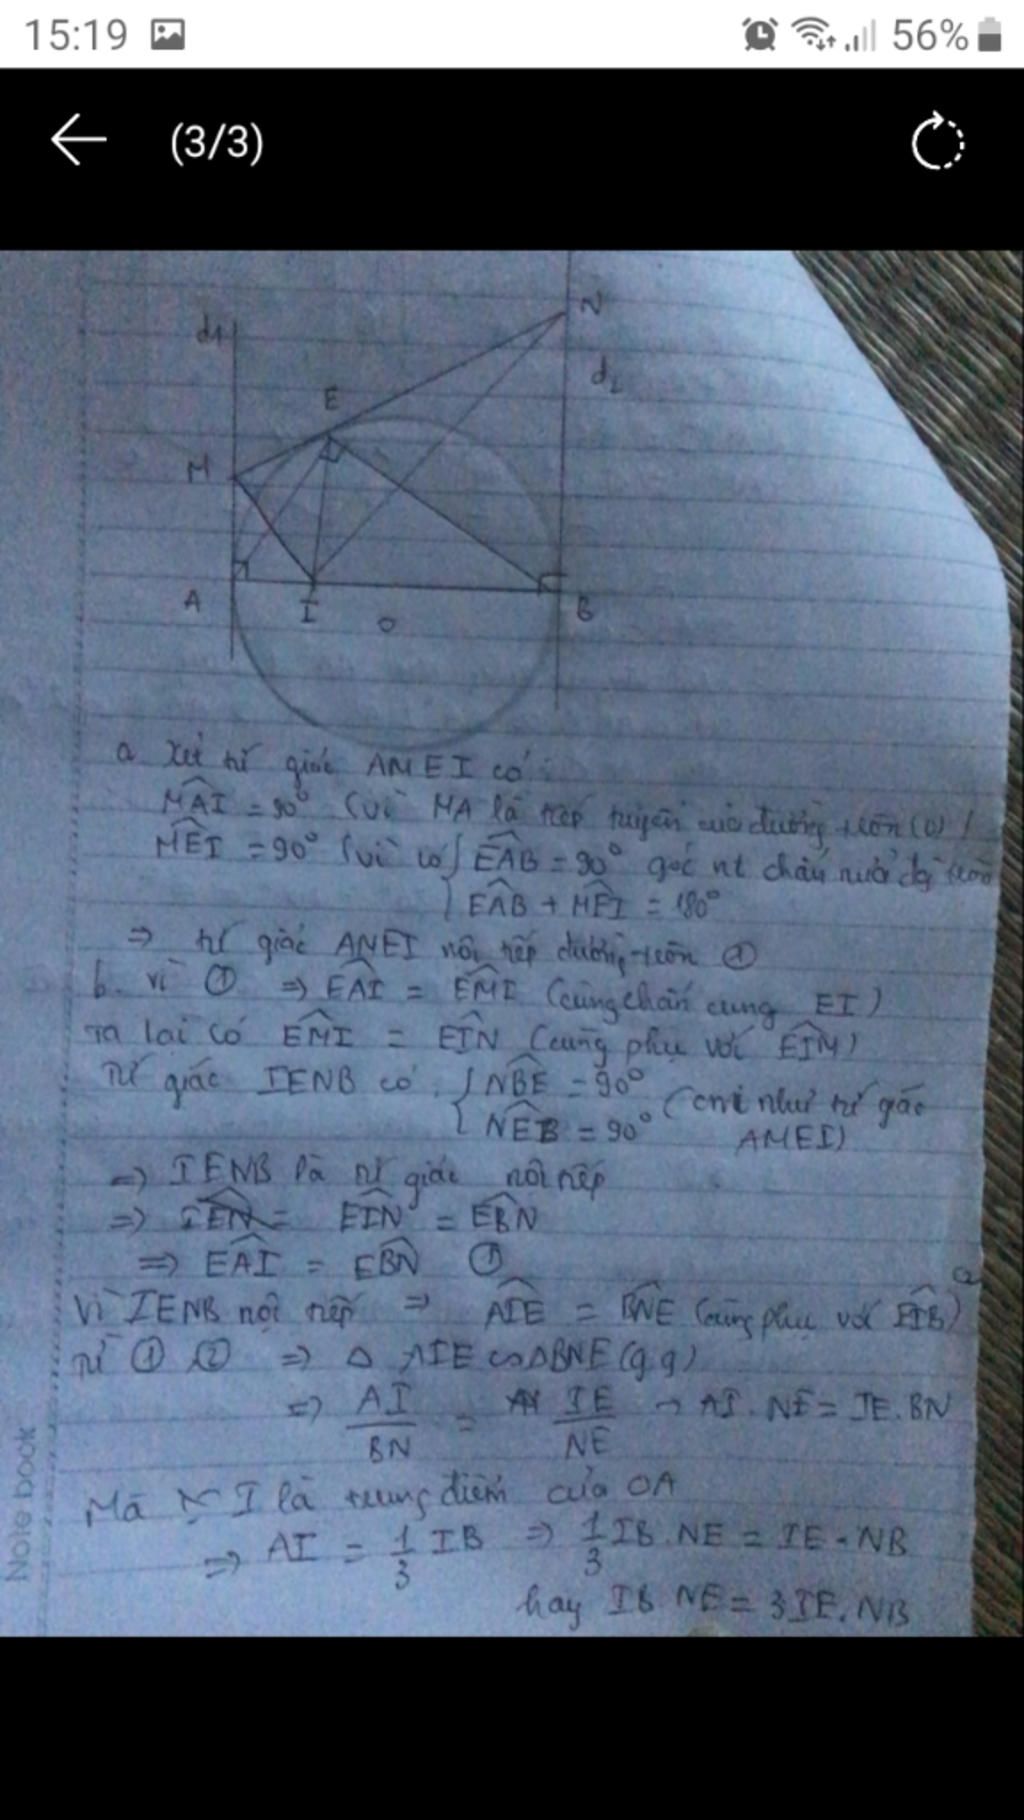 15:19
56%
(3/3)
d1
N
d2
E
M
A
I
O
B
a Xét tứ giác AMEI có:
MAI = 90° (vì MA là tiếp tuyến của đường tròn (O))
MEI = 90° (vì có { EAB = 90° góc nt chắn nửa đg tròn
EAB + MEI = 180°
=> tứ giác AMEI nội tiếp đường tròn ①
b. vì ① => EAI = EMI (cùng chắn cung EI)
ta lại có EMI = EIN (cùng phụ với EIM)
Tứ giác IENB có { NBE = 90° (cmt như tứ giác
NEB = 90° AMEI)
=> IENB là tứ giác nội tiếp
=> EIN = EBN
=> EAI = EBN ①
Vì IENB nội tiếp => AIE = BNE (cùng phụ với EIB) ②
từ ① ② => Δ AIE ∽ Δ BNE (g.g)
=> AI/BN = IE/NE → AI . NE = IE . BN
Mà I là trung điểm của OA
=> AI = 1/3 IB => 1/3 IB . NE = IE . NB
hay IB NE = 3 IE . NB
Note book